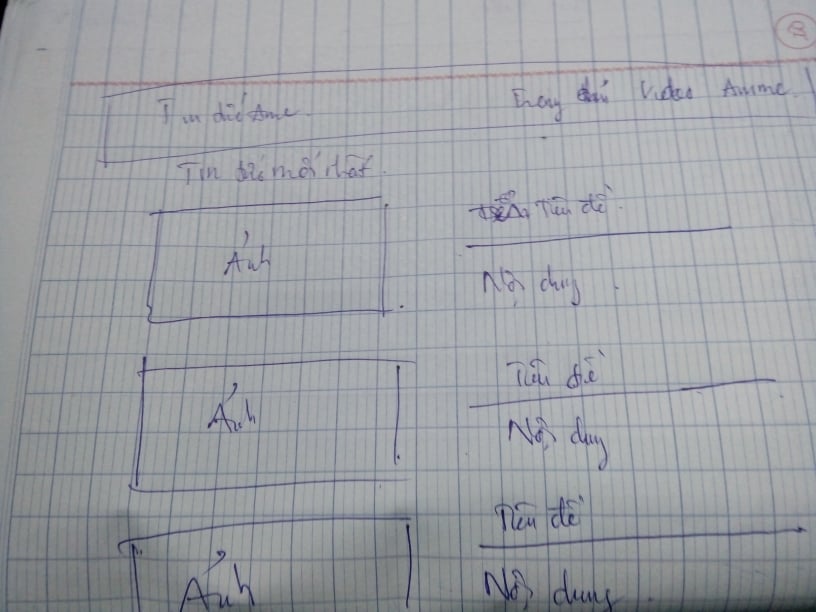 Tin tức Ame. Trang chủ Video Anime.
Tin tức mới nhất.
Ảnh
Tiêu đề.
Nội dung.
Ảnh
Tiêu đề
Nội dung
Ảnh
Tiêu đề
Nội dung.